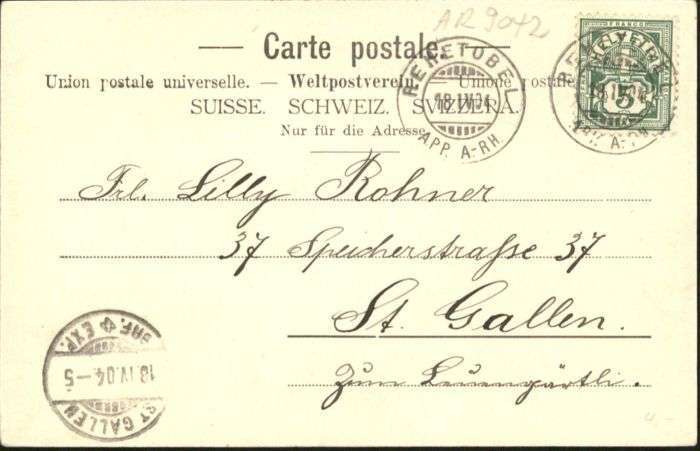 AR 9042
FRANCO
HELVETIA
5
— Carte postale. —
Union postale universelle. — Weltpostverein. — Unione postale
SUISSE. SCHWEIZ. SVIZZERA.
Nur für die Adresse.
REHETOBEL
18.IV.04
APP. A-RH.
18.IV.04
A-RH.
Frl. Lilly Rohner
37 Speicherstraße 37
St. Gallen.
zum Leuengärtli.
BRF. EXP.
18.IV.04–5
ST GALLEN